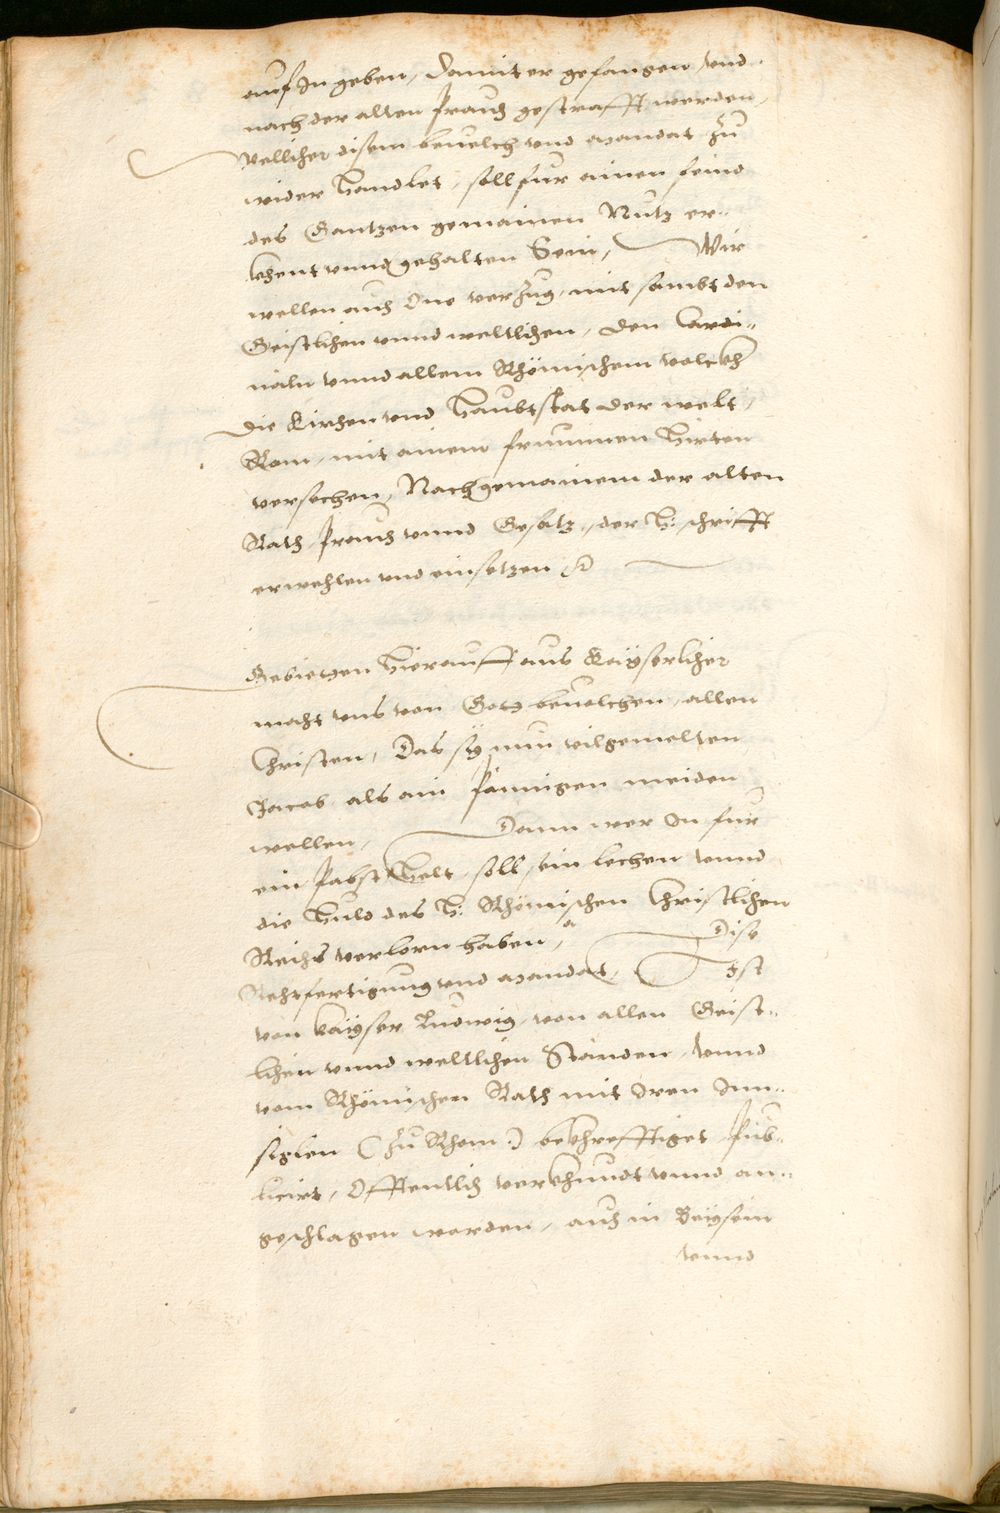 auf In geben, damit er gefangen, vnd
nach der alten prauch gestrafft werden,
Wellicher disem beuelch vnd Mandat zu
wider handlet, soll für ainen feind
des Gantzen gemainen Nutz er-
khent vnnd gehalten Sein, Wir
wellen auch One verzug, mit sambt den
Geistlichen vnnd weltlichen, den Cardi-
näln vnnd allem Rhömischem volckh
die Kirchen vnd haubtstat der welt,
Rom, mit ainem frummen hirten
versechen, Nach gemainem der alten
Rath, prauch vnnd Gesatz, der h: schrifft
erwehlen vnd einsetzen
Gebieten hierauff aus Kayserlicher
macht vns von Gott beuolchen, allen
Christen, Das sy nun vilgemelten
Jacob als ain painigen meiden
wellen, Dann wer In für
ein Pabst helt, soll sein lechen vnnd
die huld des h: Rhömischen Christlichen
Reichs verlorn haben, Dise
Rechtfertigung vnd Mandat, Ist
von kayser Ludwig, von allen Geist-
lichen vnnd weltlichen Ständen, vnnd
vom Rhömischen Rath mit Iren Inn-
siglen (zu Rhom:) bekhrefftiget, pub-
liciert, Offentlich verkhundt vnnd an-
geschlagen worden, auch in Beysein
vnnd